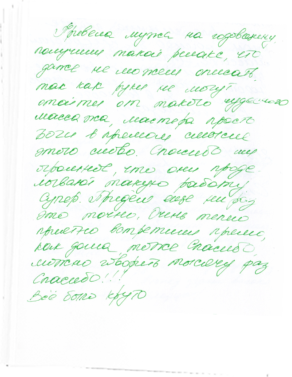 Привела мужа на годовщину
получили такой релакс, что
даже не можем описать,
так как руки не могут
отойти от такого чудесного
массажа, мастера просто
Боги в прямом смысле
этого слово. Спасибо им
огромное, что они проде
лывают такую работу
Супер. Придем еще не раз
это точно. Очень тепло
приятно встретили прямо,
как дома тоже Спасибо
можно говорить тысячу раз
Спасибо!!!
Всё было круто